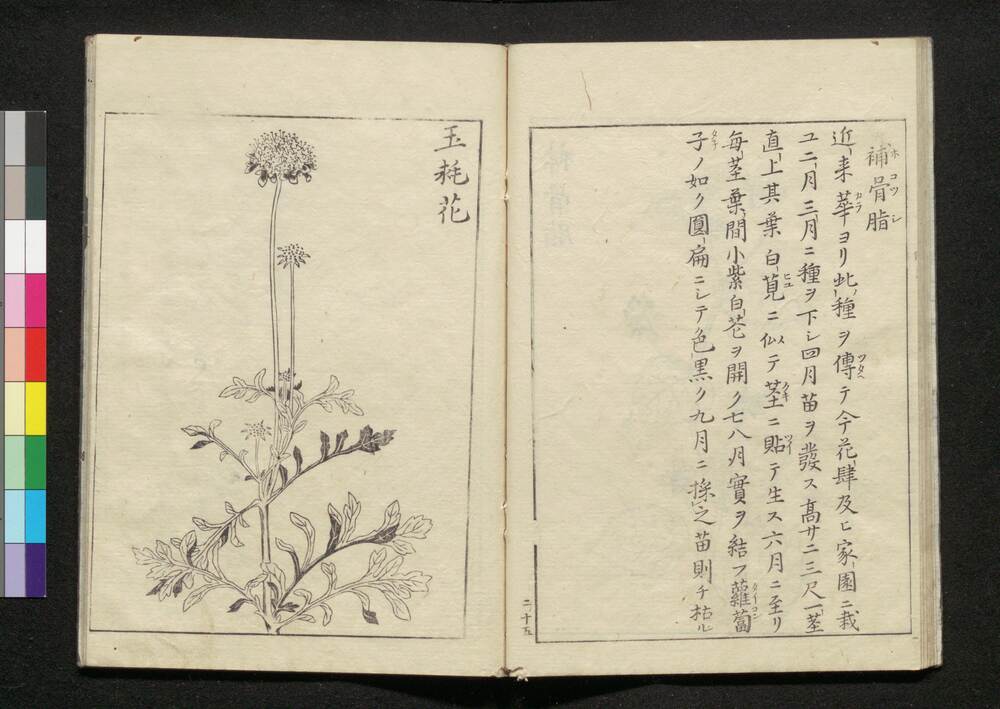 補骨脂
近来華ヨリ此種ヲ傳テ今花肆及ヒ家園ニ栽
ユ二月三月ニ種ヲ下シ四月苗ヲ發ス高サ二三尺一莖
直上其葉白莧ニ似テ莖ニ貼テ生ス六月ニ至リ
毎莖葉間小紫白花ヲ開ク七八月實ヲ結フ蘿蔔
子ノ如ク圓扁ニシテ色黒ク九月ニ採之苗則チ枯ル
二ノ十五
玉毬花